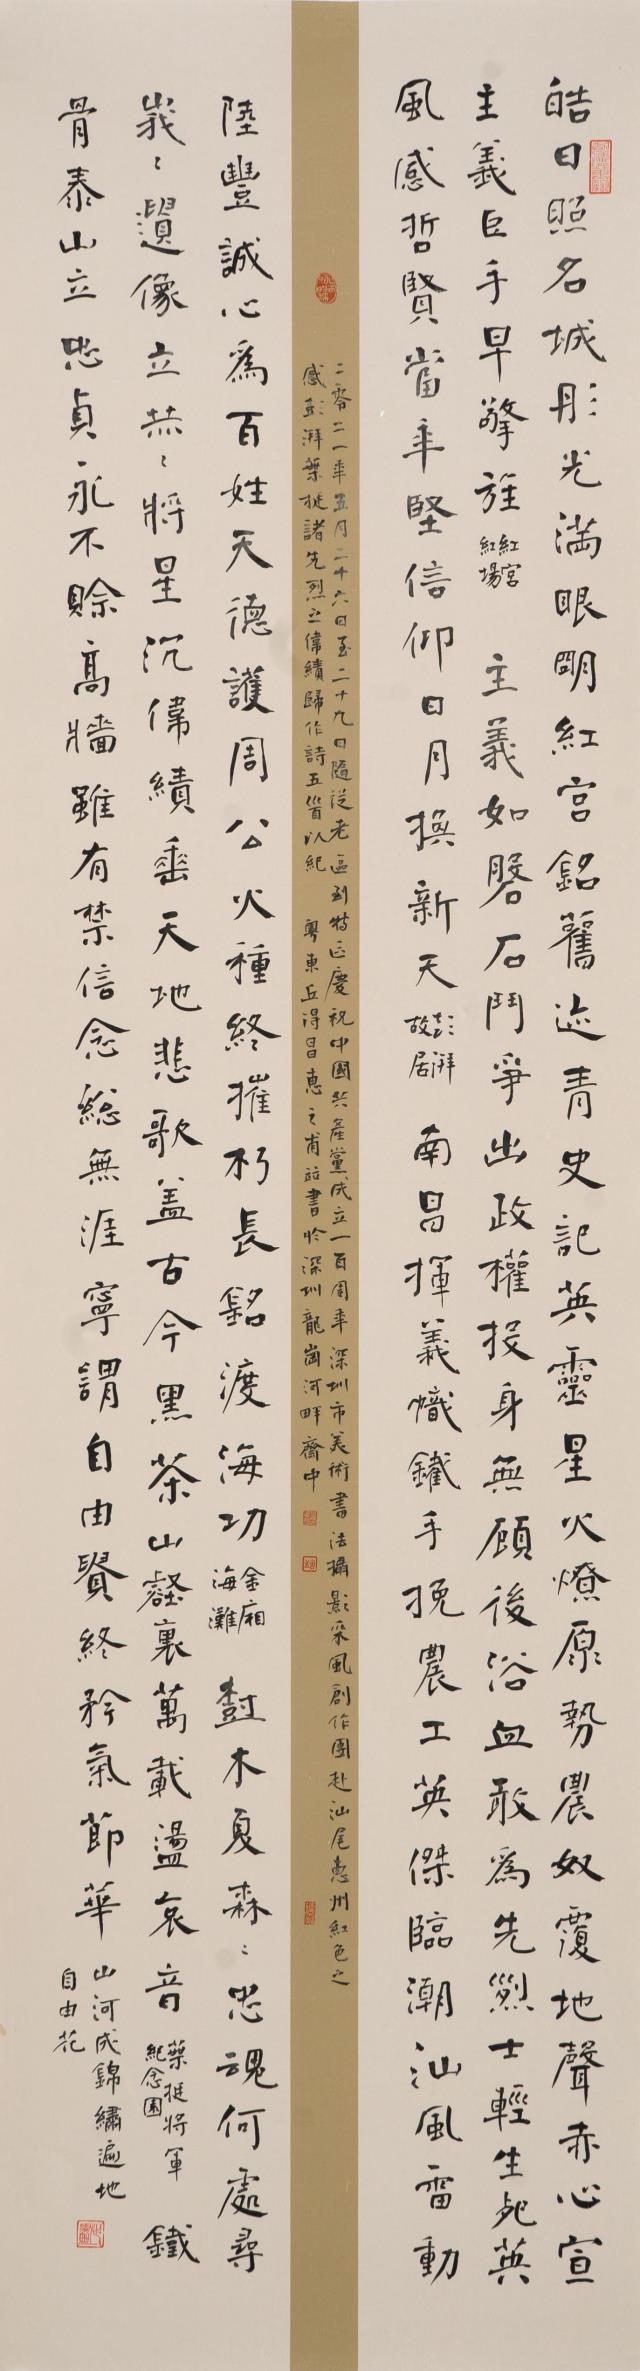 皓日照名城彤光滿眼明紅宮銘舊迹青史記英靈星火燎原勢農奴覆地聲赤心宣
主義巨手早擎旌紅宮紅場 主義如磐石鬥爭出政權投身無顧後浴血敢為先烈士輕生死英
風感哲賢當年堅信仰日月換新天彭湃故居 南昌揮義幟鐵手挽農工英傑臨潮汕風雷動
二零二一年五月二十六日至二十九日隨從老區到特區慶祝中國共產黨成立一百周年 深圳市美術書法攝影采風創作團赴汕尾惠州紅色之
感彭湃葉挺諸先烈之偉績歸作詩五首以紀 粵東丘得昌惠之甫並書於深圳龍崗河畔齋中
陸豐誠心為百姓天德護周公火種終摧朽長銘渡海功金廂海灘 樹木夏森森忠魂何處尋
峩峩遺像立恭恭將星沉偉績垂天地悲歌蓋古今黑茶山壑裏萬載盪哀音葉挺將軍紀念園 鐵
骨泰山立忠貞永不賒高牆雖有禁信念總無涯寧謂自由賢終矜氣節華 山河成錦繡遍地
自由花